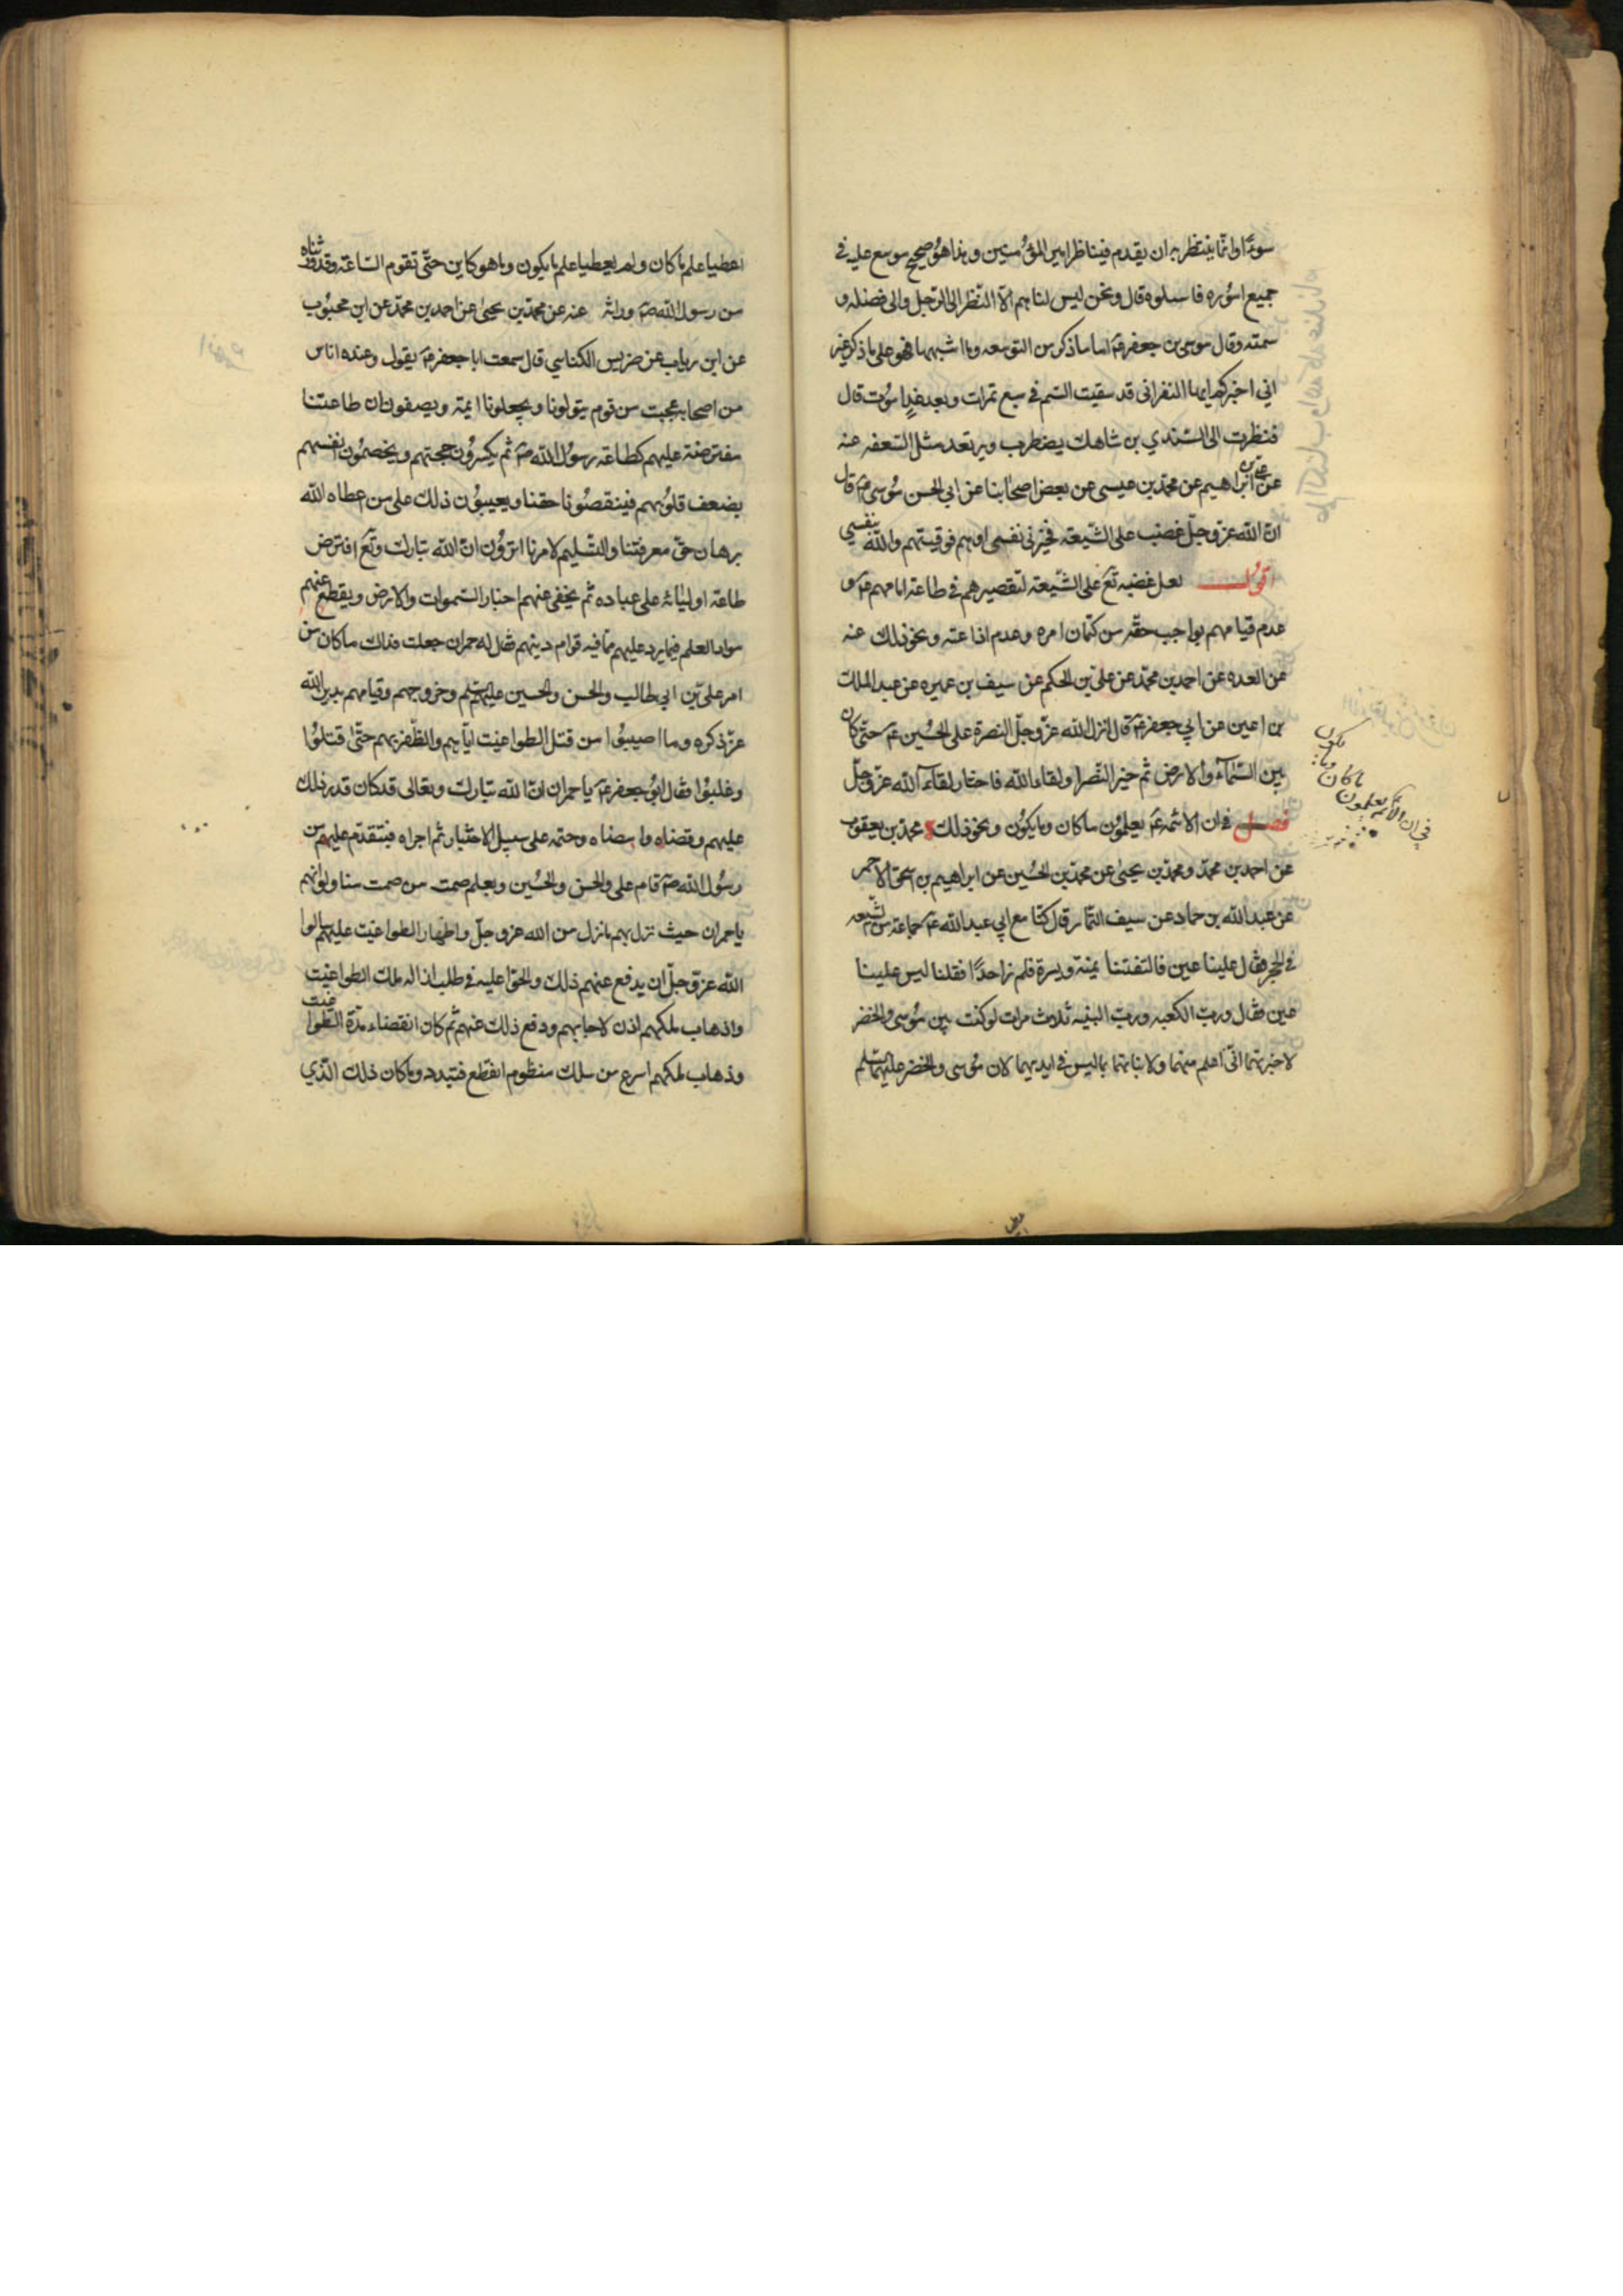 سوءًا وانّما ينتظر به ان يقدم فيناظر امير المؤمنين وهذا هو صحيح موسع عليه في
جميع اموره فاسلوه قال ونحن ليس لنا هم الا النظر الى الرجل والى فضله و
سمته وقال موسى بن جعفر ع اما ما ذكر من التوسعه وما اشبهها فهو على ما ذكر غير
اني اخبركم ايها النفر اني قد سقيت السم في سبع تمرات وبعد غدٍ اموت قال
فنظرت الى السّندي بن شاهك يضطرب ويرتعد مثل السّعفه عنه
عن علي بن ابراهيم عن محمّد بن عيسى عن بعض اصحابنا عن ابي الحسن موسى ع قال
انّ الله عزّ وجلّ غضب على الشّيعة فخيّرني نفسي او هم فوقيتهم والله بنفسي
اقول لعل غضبه تع على الشّيعة لتقصيرهم في طاعة امامهم ع و
عدم قيامهم بواجب حقّه من كتمان امره وعدم اذاعته ونحو ذلك عنه
عن العده عن احمد بن محمّد عن علي بن الحكم عن سيف بن عميره عن عبد الملك
بن اعين عن ابي جعفر ع قال انزل الله عزّ وجلّ النصرة على الحسين ع حتّى كان
بين السّماء والارض ثم خيّر النّصر او لقاء الله فاختار لقاء الله عزّ وجلّ
فصل في ان الائمه ع يعلمون ما كان وما يكون ونحو ذلك محمّد بن يعقوب
عن احمد بن محمّد ومحمّد بن يحيى عن محمّد بن الحسين عن ابراهيم بن اسحق الاحمر
عن عبد الله بن حماد عن سيف التمّار قال كنّا مع ابي عبد الله ع جماعة من الشّيعه
في الحجر فقال علينا عين فالتفتنا يمنة ويسرة فلم نر احدًا فقلنا ليس علينا
عين فقال وربّ الكعبه وربّ البنيه ثلاث مرات لو كنت بين موسى والخضر
لاخبرتهما انّي اعلم منهما ولانباتهما بما ليس في ايديهما لان موسى والخضر عليهما السّلم
في ان الائمه يعلمون
ما كان وما
يكون
اعطيا علم ما كان ولم يعطيا علم ما يكون وما هو كاين حتّى تقوم السّاعة وقد ورثناه
من رسول الله ص وراثة عنه عن محمّد بن يحيى عن احمد بن محمّد عن ابن محبوب
عن ابن رياب عن ضريس الكناسي قال سمعت ابا جعفر ع يقول وعنده اناس
من اصحابه عجبت من قوم يتولونا ويجعلونا ايمة ويصفون ان طاعتنا
مفترضة عليهم كطاعة رسول الله ص ثم يكسرون حجتهم ويخصمون انفسهم
بضعف قلوبهم فينقصونا حقنا ويعيبون ذلك على من اعطاه الله
برهان حقّ معرفتنا والتّسليم لامرنا اترون انّ الله تبارك وتع افترض
طاعة اوليائه على عباده ثم يخفى عنهم اخبار السّموات والارض ويقطع عنهم
مواد العلم فيما يرد عليهم ممّا فيه قوام دينهم فقال له حمران جعلت فداك ما كان من
امر علي بن ابي طالب والحسن والحسين عليهم السّلم وخروجهم وقيامهم بدين الله
عزّ ذكره وما اصيبوا من قتل الطواغيت ايّاهم والظّفر بهم حتّى قتلوا
وغلبوا فقال ابو جعفر ع يا حمران انّ الله تبارك وتعالى قد كان قدر ذلك
عليهم وقضاه وامضاه وحتمه على سبيل الاختيار ثم اجراه فبتقدّم عليهم من
رسول الله ص قام علي والحسن والحسين وبعلم صمت من صمت منا ولو انّهم
يا حمران حيث نزل بهم ما نزل من الله عزّ وجلّ واظهار الطواغيت عليهم سالوا
الله عزّ وجلّ ان يدفع عنهم ذلك والحّوا عليه في طلب ازاله ملك الطواغيت
واذهاب ملكهم اذن لاجابهم ودفع ذلك عنهم ثم كان انقضاء مدّة الطّواغيت
وذهاب ملكهم اسرع من سلك منظوم انقطع فتبدد وما كان ذلك الّذي